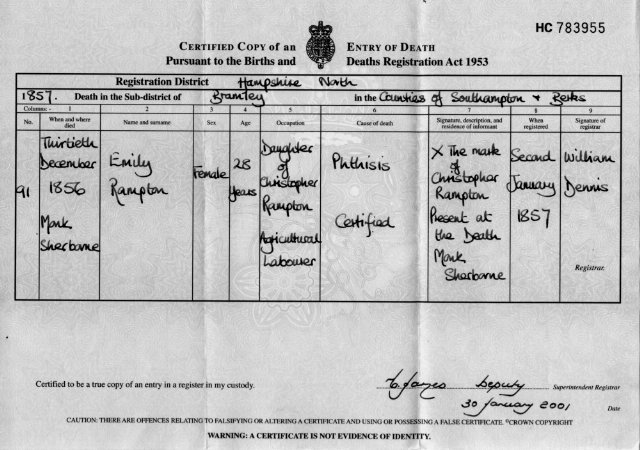 HC 783955
CERTIFIED COPY of an ENTRY OF DEATH
Pursuant to the Births and Deaths Registration Act 1953
Registration District Hampshire North
1857. Death in the Sub-district of Bramley in the Counties of Southampton + Berks
Columns:- 1 2 3 4 5 6 7 8 9
No. When and where died Name and surname Sex Age Occupation Cause of death Signature, description, and residence of informant When registered Signature of registrar
91
Thirtieth
December
1856
Monk
Sherborne
Emily
Rampton
Female
28
years
Daughter
of
Christopher
Rampton
Agricultural
Labourer
Phthisis
Certified
X The mark
of
Christopher
Rampton
Present at
the Death
Monk
Sherborne
Second
January
1857
William
Dennis
Registrar.
Certified to be a true copy of an entry in a register in my custody.
Deputy Superintendent Registrar
30 January 2001 Date
CAUTION: THERE ARE OFFENCES RELATING TO FALSIFYING OR ALTERING A CERTIFICATE AND USING OR POSSESSING A FALSE CERTIFICATE. ©CROWN COPYRIGHT
WARNING: A CERTIFICATE IS NOT EVIDENCE OF IDENTITY.